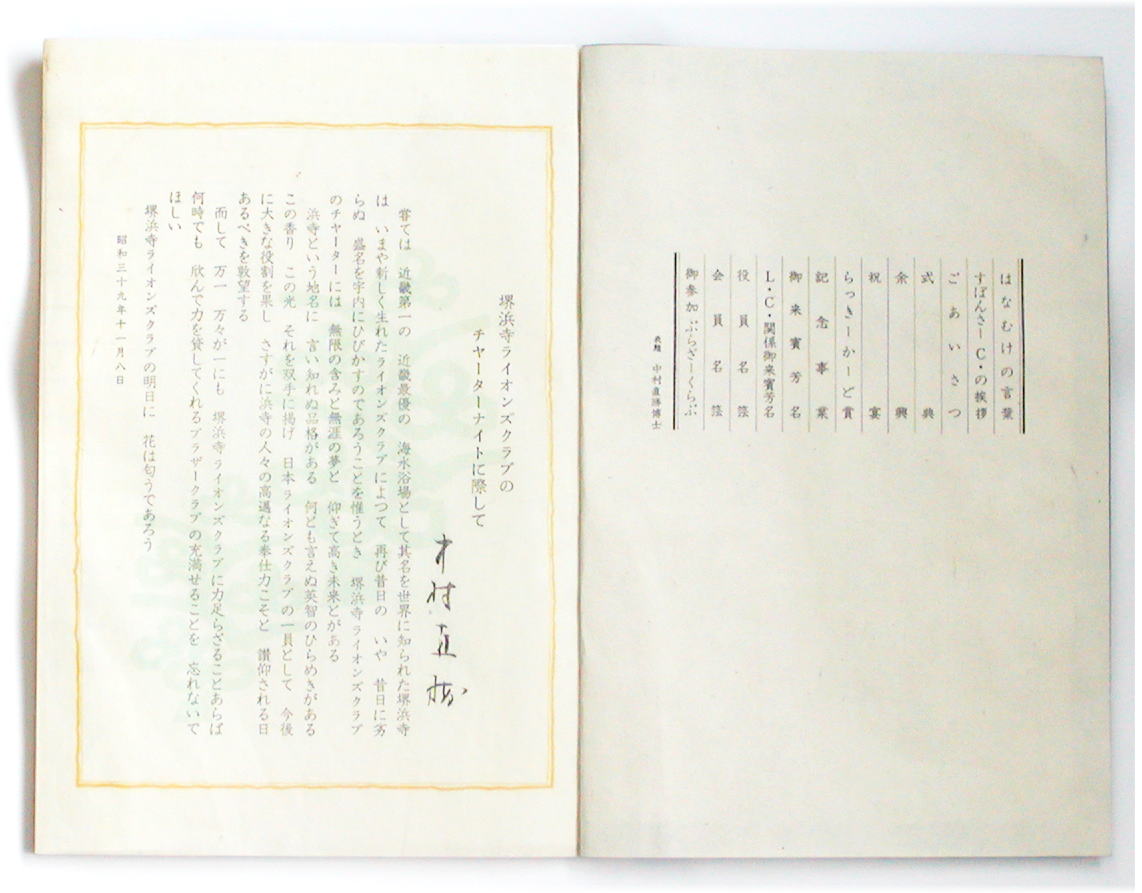 はなむけの言葉
すぽんさーC・の挨拶
ごあいさつ
式典
余興
祝宴
らっきーかーど賞
記念事業
御来賓芳名
L・C・関係御来賓芳名
役員名簿
会員名簿
御参加ぶらざーくらぶ
表題 中村直勝博士
堺浜寺ライオンズクラブの
チャーターナイトに際して
中村直勝
嘗ては 近畿第一の 近畿最優の 海水浴場として其名を世界に知られた堺浜寺
は いまや新しく生れたライオンズクラブによつて 再び昔日の いや 昔日に劣
らぬ 盛名を宇内にひびかすのであろうことを惟うとき 堺浜寺ライオンズクラブ
のチャーターには 無限の含みと無涯の夢と 仰ぎて高き未来とがある
浜寺という地名に 言い知れぬ品格がある 何とも言えぬ英智のひらめきがある
この香り この光 それを双手に掲げ 日本ライオンズクラブの一員として 今後
に大きな役割を果し さすがに浜寺の人々の高邁なる奉仕力こそと 讃仰される日
あるべきを敦望する
而して 万一 万々が一にも 堺浜寺ライオンズクラブに力足らざることあらば
何時でも 欣んで力を貸してくれるブラザークラブの充満せることを 忘れないで
ほしい
堺浜寺ライオンズクラブの明日に 花は匂うであろう
昭和三十九年十一月八日